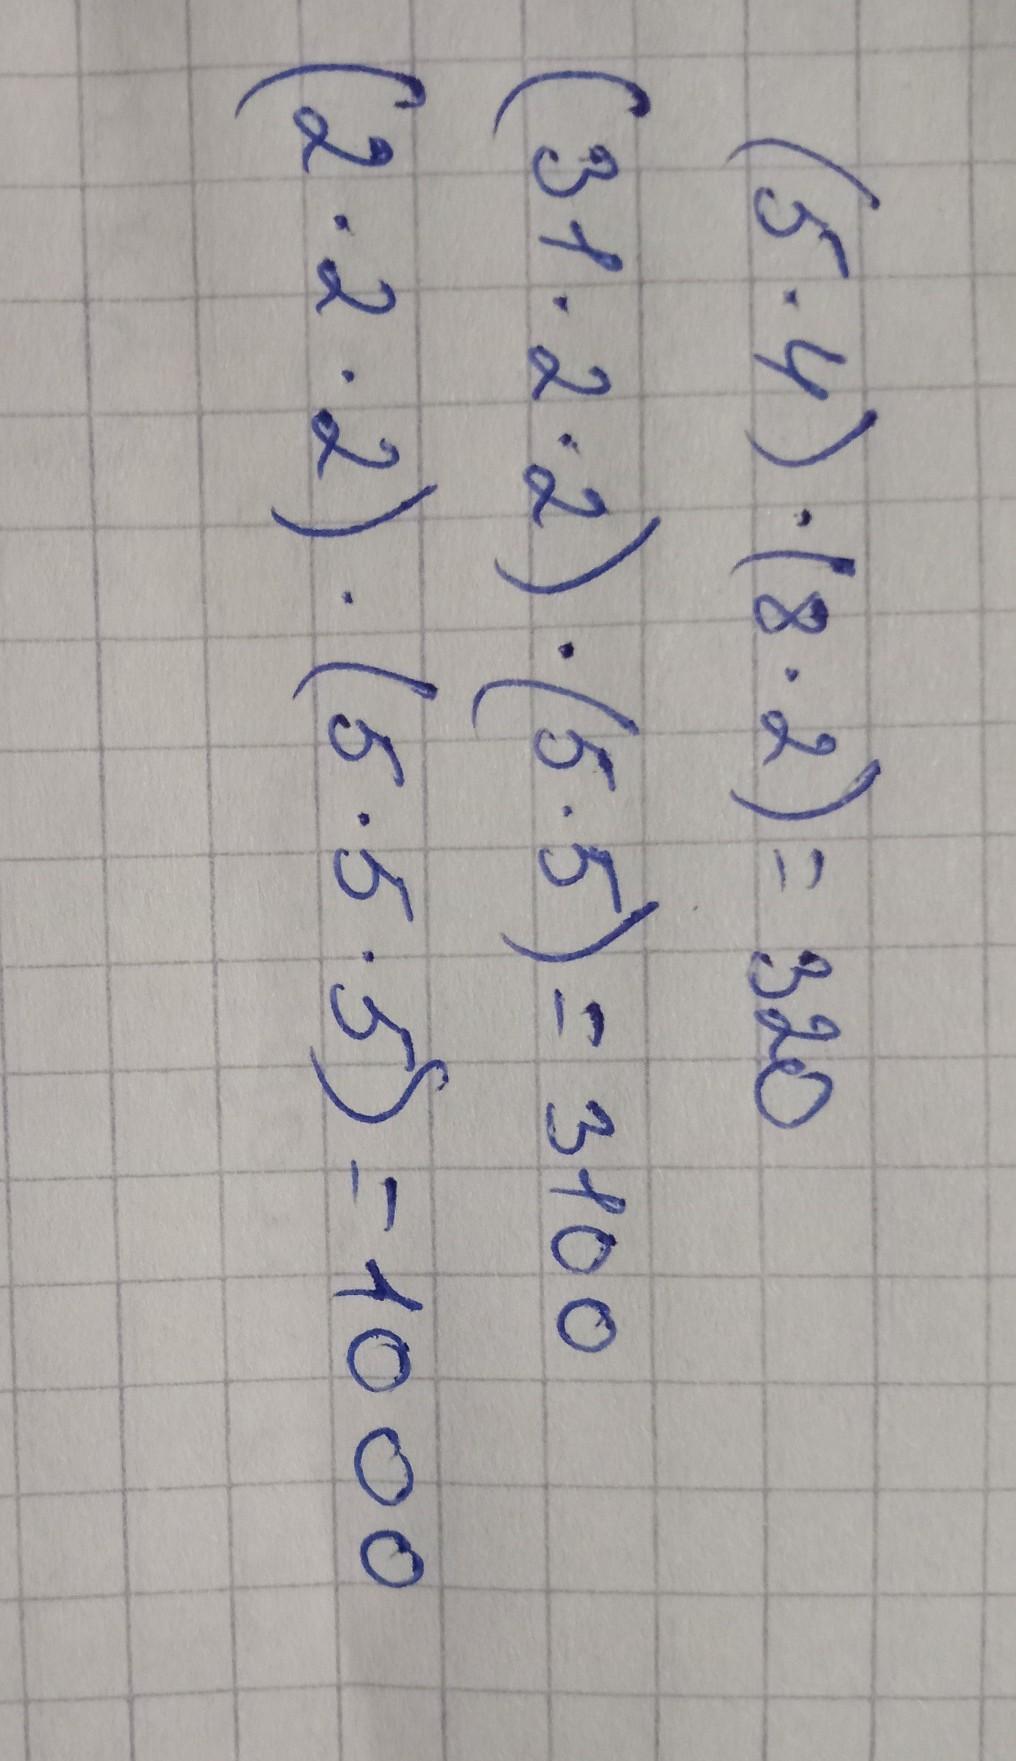 (5·4)·(8·2)=320
(31·2·2)·(5·5)=3100
(2·2·2)·(5·5·5)=1000